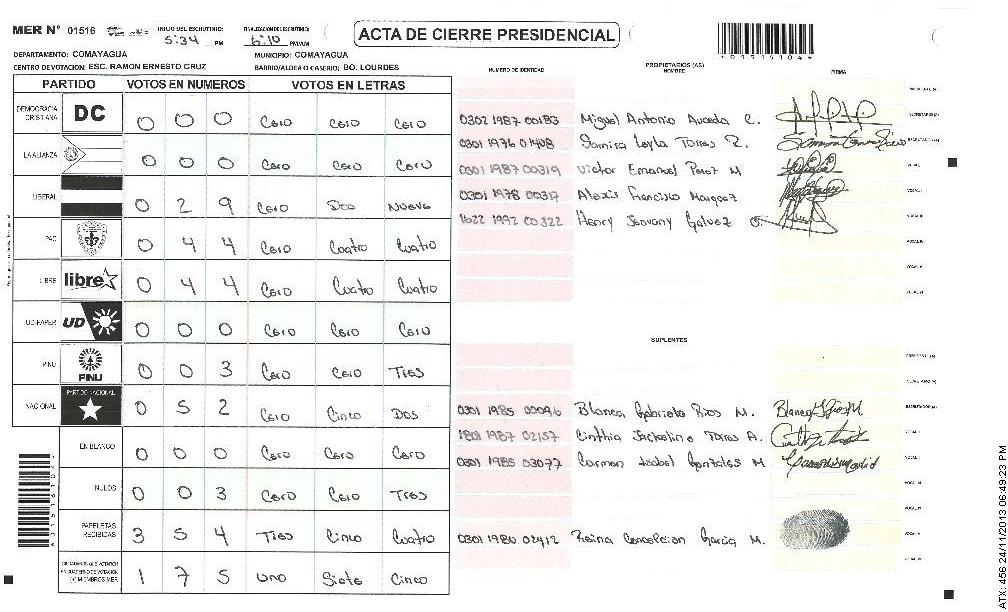 MER N° 01516 INICIO DEL ESCRUTINIO: 5:34 PM FINALIZACION DEL ESCRUTINIO: 6:10 PM/AM ACTA DE CIERRE PRESIDENCIAL
DEPARTAMENTO: COMAYAGUA MUNICIPIO: COMAYAGUA
CENTRO DE VOTACION: ESC. RAMON ERNESTO CRUZ BARRIO/ALDEA O CASERIO: BO. LOURDES
NUMERO DE IDENTIDAD PROPIETARIOS (AS) NOMBRE FIRMA
PARTIDO VOTOS EN NUMEROS VOTOS EN LETRAS
DEMOCRACIA CRISTIANA DC 0 0 0 Cero Cero Cero
LA ALIANZA 0 0 0 Cero Cero Cero
LIBERAL 0 2 9 Cero Dos Nueve
PAC 0 4 4 Cero Cuatro Cuatro
LIBRE libre 0 4 4 Cero Cuatro Cuatro
UD-FAPER UD 0 0 0 Cero Cero Cero
PINU PINU 0 0 3 Cero Cero Tres
NACIONAL PARTIDO NACIONAL 0 5 2 Cero Cinco Dos
EN BLANCO 0 0 0 Cero Cero Cero
NULOS 0 0 3 Cero Cero Tres
PAPELETAS RECIBIDAS 3 5 4 Tres Cinco Cuatro
CIUDADANOS QUE VOTARON EN CUADERNO DE VOTACION (+) MIEMBROS MER 1 7 5 Uno Siete Cinco
0302 1987 00183 Miguel Antonio C.
0301 1976 01408 Samira Leyla Torres R.
0301 1987 00319 Victor Emanuel Perez M
0301 1978 00317 Alexis Francisco Marquez
1622 1992 00322 Henry Jeovany Galvez O.
SUPLENTES
0301 1985 00096 Blanca Gabriela Rios M.
1801 1987 02157 Cinthia Jackeline Torres A.
0301 1985 03077 Carmen Isabel Gonzales M
0301 1980 02412 Reina Concepcion Garcia M.
ATX: 456 24/11/2013 06:49:23 PM